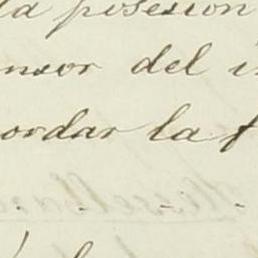 la posesion
ensor del i
ordar la f